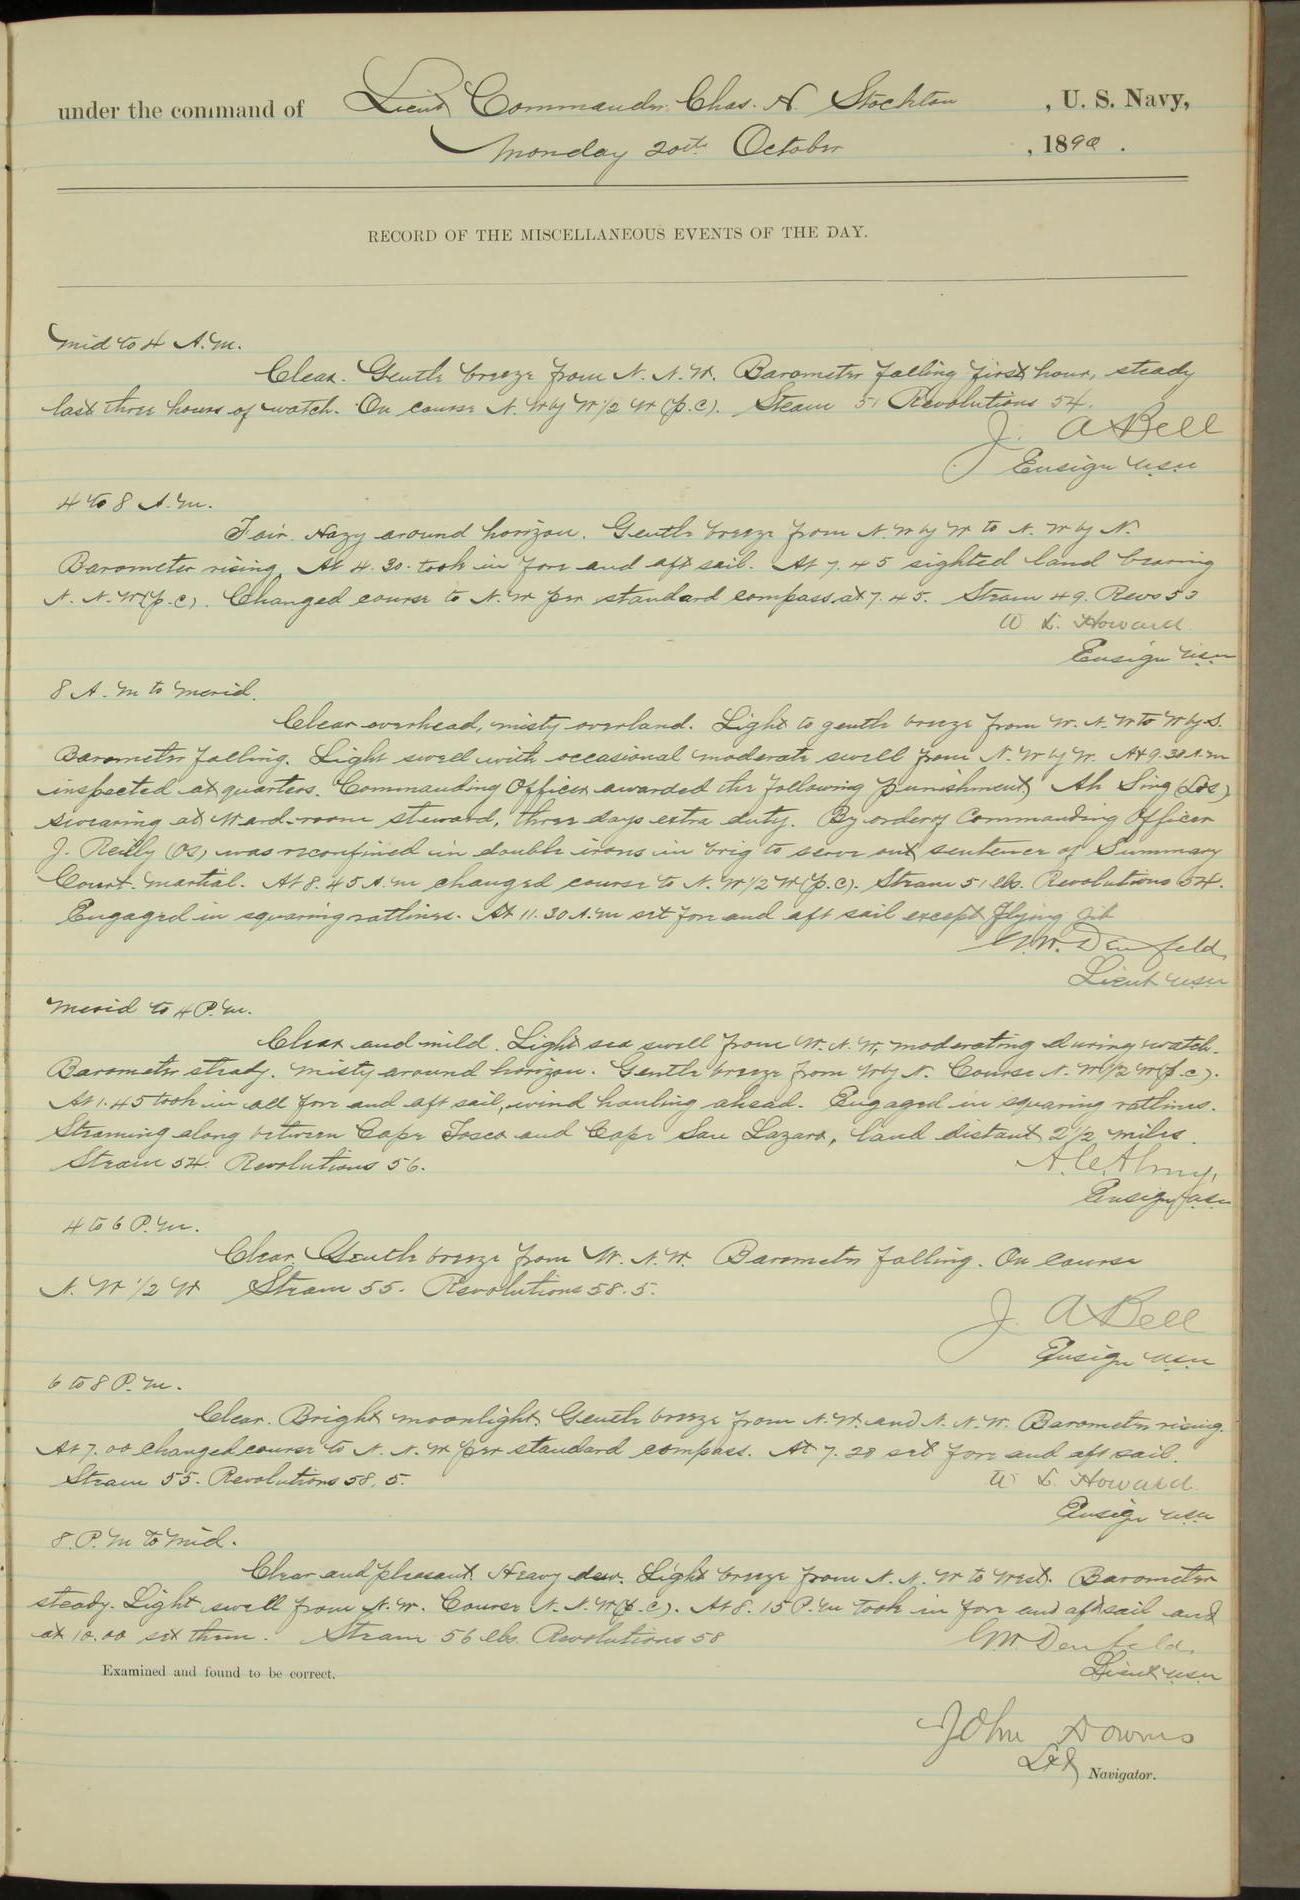 under the command of Lieut Commander Chas. H Stockton , U. S. Navy,
Monday 20th October , 1890 .
RECORD OF THE MISCELLANEOUS EVENTS OF THE DAY.
Mid to 4 A.M.
Clear. Gentle breeze from N. N. W. Barometer falling first hour, steady
last three hours of watch. On course N. W by W 1/2 W (p.c). Steam 51 Revolutions 54.
J. A Bell
Ensign USN
4 to 8 A.M.
Fair. Hazy around horizon. Gentle breeze from N. W by W to N. W by N.
Barometer rising. At 4.30. took in fore and aft sail. At 7.45 sighted land bearing
N. N. W (p.c). Changed course to N. W per standard compass at 7.45. Steam 49. Revs 53
W L. Howard
Ensign USN
8 A. M to Merid.
Clear overhead, misty overland. Light to gentle breeze from W. N. W to W by S.
Barometer falling. Light swell with occasional moderate swell from N. W by W. At 9.30 A.M
inspected at quarters. Commanding Officer awarded the following punishment, Ah Sing
swearing at Ward-room steward, three days extra duty. By order of Commanding Officer
J. Reilly (OS) was reconfined in double irons in brig to serve out sentence of Summary
Court-Martial. At 8.45 A.M changed course to N. W 1/2 W (p.c). Steam 51 lbs. Revolutions 54.
Engaged in squaring ratlines. At 11.30 A.M set fore and aft sail except flying jib
G.W. Denfeld,
Lieut USN
Merid to 4 P.M.
Clear and mild. Light sea swell from W. N. W, moderating during watch.
Barometer steady. Misty around horizon. Gentle breeze from W by N. Course N. W 1/2 W (p.c).
At 1.45 took in all fore and aft sail, wind hauling ahead. Engaged in squaring ratlines.
Steaming along between Cape Tosco and Cape San Lazaro, land distant 2 1/2 miles.
Steam 54. Revolutions 56.
A. C. Almy,
Ensign USN
4 to 6 P.M.
Clear Gentle breeze from W. N. W. Barometer falling. On course
N. W 1/2 W Steam 55. Revolutions 58.5.
J. A Bell
Ensign USN
6 to 8 P.M.
Clear. Bright moonlight. Gentle breeze from N. W. and N. N. W. Barometer rising.
At 7.00 changed course to N. N. W per standard compass. At 7.28 set fore and aft sail.
Steam 55. Revolutions 58.5.
W L. Howard
Ensign USN
8. P. M to Mid.
Clear and pleasant. Heavy dew. Light breeze from N. N. W to West. Barometer
steady. Light swell from N. W. Course N. N. W (p.c). At 8.15 P.M took in fore and aft sail and
at 10.00 set them. Steam 56 lbs. Revolutions 58
G.W. Denfeld,
Lieut USN
Examined and found to be correct.
John Downes
Navigator.